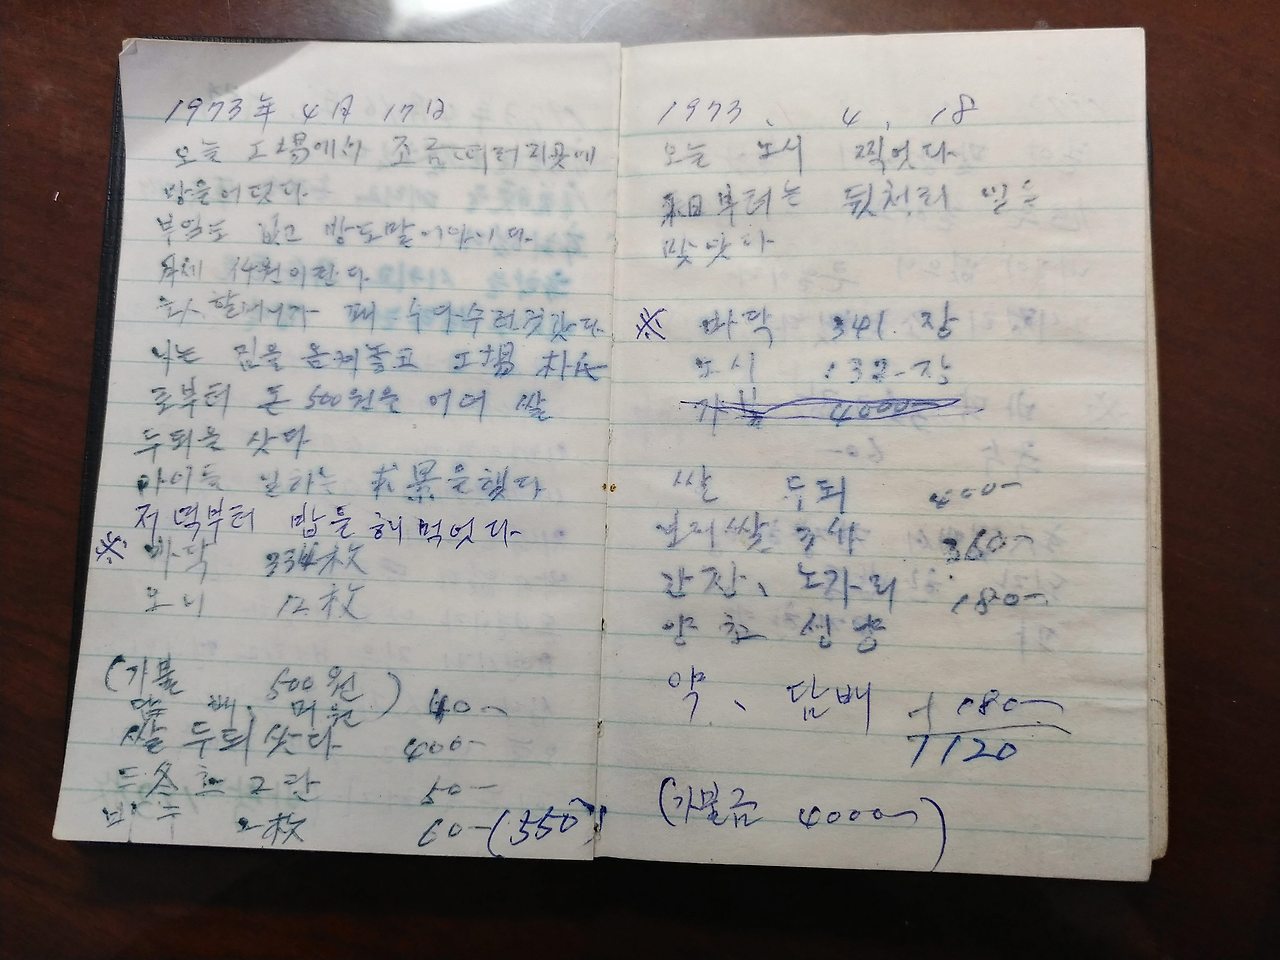 1973年 4月 17日
오늘 工場에서 조금떠러진곳에
방을어덧다
부엌도 업고 방도말이아니다
사체 14원이란다
주人할머니가 꽤 수다수런것갓다
나는 짐을 옴겨놓고 工場 朴氏
로부터 돈 500원을 어더 쌀
두되을 삿다
아이들 일하는 求景을했다
저녁부터 밥을해먹엇다
※ 바닥 334枚
오니 12枚
(가불 500원)
담배 40-
쌀 두되 삿다 400-
2단 50-
비누 2枚 60- (550)
1973. 4. 18
오늘 노시 찍엇다
來日부터는 뒷처리 일을
맞낫다
※ 바닥 341.장
노시 132-장
가불 4000-
쌀 두되 400-
보리쌀 3사 360-
간장、노가리 180-
양초 성냥
약、담배 + 180-
1120
(가불금 4000-)